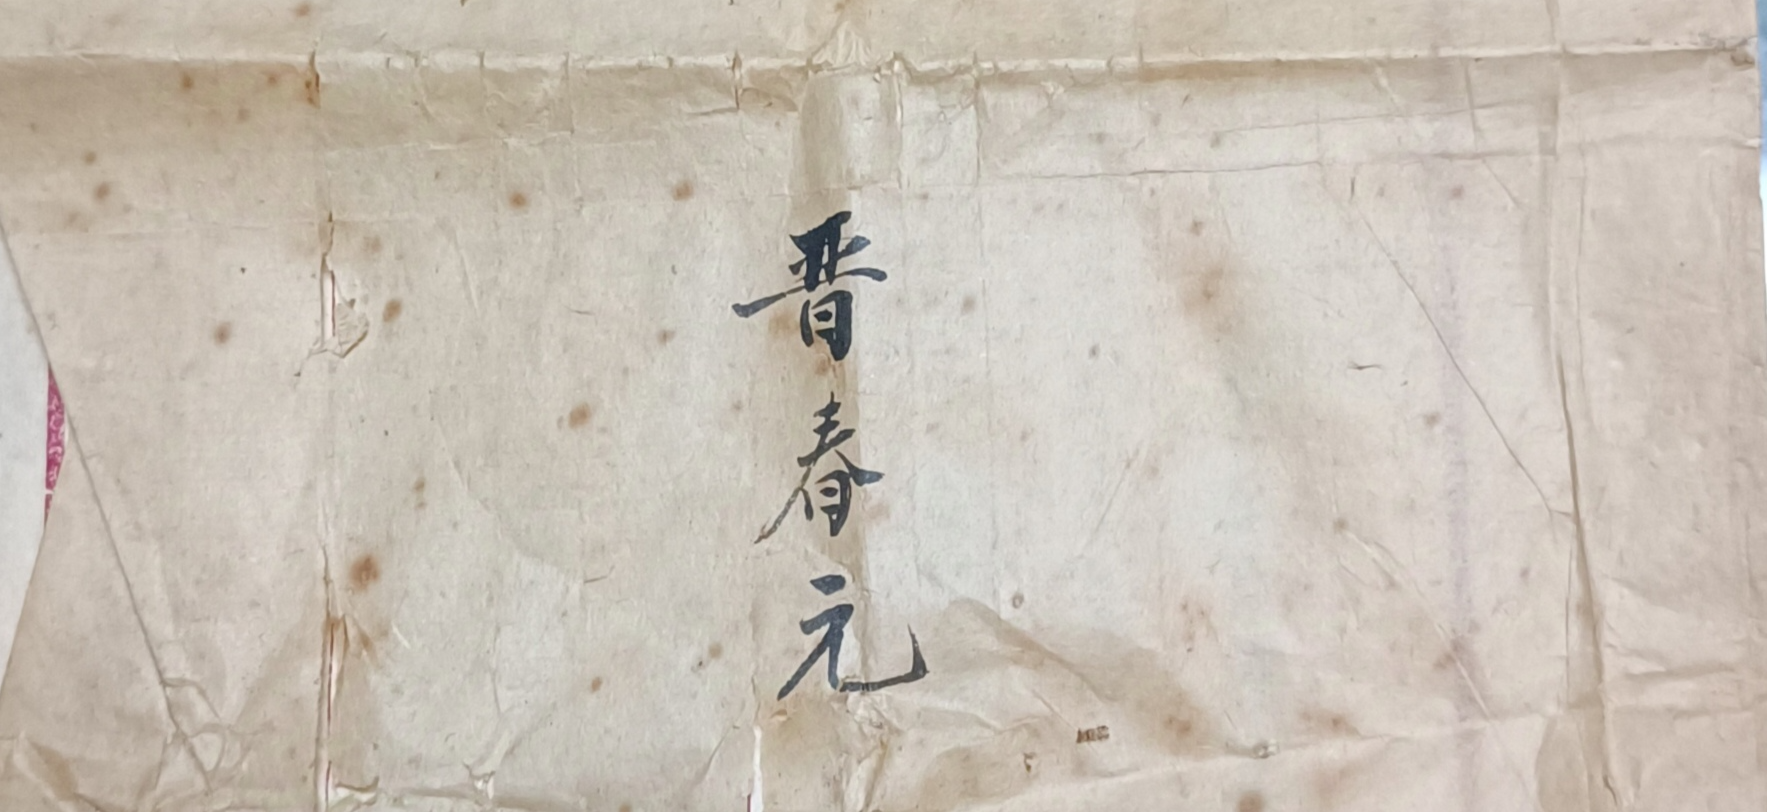 晋春元